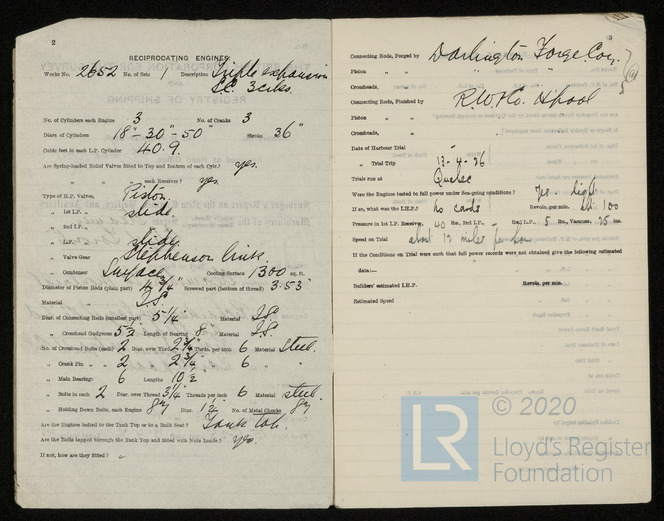 2
RECIPROCATING ENGINES
Works No. 2652 No. of Sets 1 Description Triple expansion
S.C. 3 crks.
No. of Cylinders each Engine 3 No. of Cranks 3
Diars of Cylinders 18" - 30" - 50" Stroke 36"
Cubic feet in each L.P. Cylinder 40.9.
Are Spring-loaded Relief Valves fitted to Top and Bottom of each Cylr.? yes.
" " each Receiver? yes.
Type of H.P. Valves, Piston
" 1st I.P. " slide
" 2nd I.P. "
" L.P. " slide
" Valve Gear Stephenson Link.
" Condenser Surface Cooling Surface 1300 sq. ft.
Diameter of Piston Rods (plain part) 4 3/4" Screwed part (bottom of thread) 3.53"
Material I.S.
Diar. of Connecting Rods (smallest part) 5 1/4" Material I.S.
" Crosshead Gudgeons Length of Bearing 8" Material I.S.
No. of Crosshead Bolts (each) 2 Diar. over Thrd. 2 1/4" Thrds. per inch 6 Material Steel.
" Crank Pin " " 2 " 2 3/4" " 6 "
" Main Bearings 6 Lengths 10 1/2
" Bolts in each 2 Diar. over Thread 3 1/4 Threads per inch 6 Material steel.
" Holding Down Bolts, each Engine Diar. 1 1/2 No. of Metal Chocks
Are the Engines bolted to the Tank Top or to a Built Seat? Tank top.
Are the Bolts tapped through the Tank Top and fitted with Nuts Inside? Yes.
If not, how are they fitted?
3
Connecting Rods, Forged by Darlington Forge Coy.
Piston " "
Crossheads, "
Connecting Rods, Finished by
Piston " "
Crossheads, "
Date of Harbour Trial
" Trial Trip 13-4-26
Trials run at Quebec
Were the Engines tested to full power under Sea-going conditions? Yes. light
If so, what was the I.H.P.? No cards Revols. per min. 100
Pressure in 1st I.P. Receiver, 40 lbs. 2nd I.P., lbs.; L.P., 5 lbs., Vacuum, 25 ins.
Speed on Trial about 12 miles per hour
If the Conditions on Trial were such that full power records were not obtained give the following estimated
data:—
Builders' estimated I.H.P. Revols. per min.
Estimated Speed
LR
© 2020
Lloyd's Register
Foundation